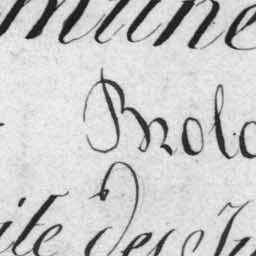 mune
Brola
ite des Ju